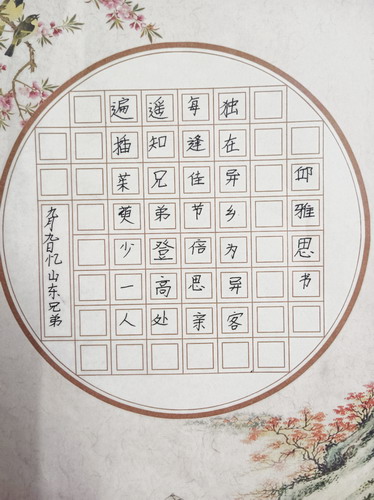 邱雅思书
独在异乡为异客
每逢佳节倍思亲
遥知兄弟登高处
遍插茱萸少一人
九月九日忆山东兄弟